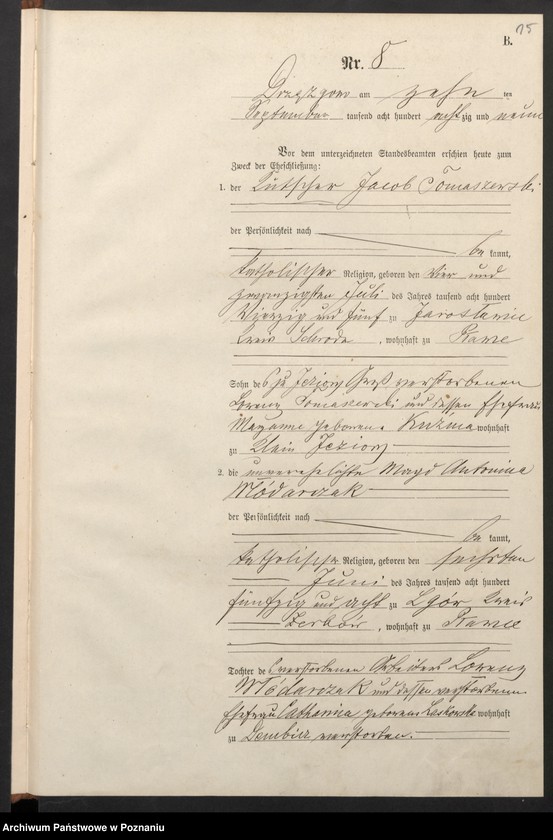 15
B.
Nr. 8
am zehn ten
September tausend acht hundert achtzig und neun
Vor dem unterzeichneten Standesbeamten erschien heute zum
Zweck der Eheschließung:
1. der Kutscher Jacob Tomaszewski
der Persönlichkeit nach
be kannt,
katholischer Religion, geboren den vier und
zwanzigsten Juli des Jahres tausend acht hundert
vierzig und fünf zu Jaroslawiec
Kreis Schroda, wohnhaft zu
Sohn des zu Jeziory Groß verstorbenen
Lorenz Tomaszewski und dessen Ehefrau
Maryanne geborene Kuźma wohnhaft
zu Klein Jeziory
2. die unverehelichte Magd Antonina
Włódarczak
der Persönlichkeit nach
be kannt,
katholische Religion, geboren den sechsten
Juni des Jahres tausend acht hundert
fünfzig und acht zu Kreis
, wohnhaft zu
Tochter des verstorbenen Arbeiters Lorenz
Włódarczak und dessen verstorbenen
Ehefrau Catharina geborene Laskowska wohnhaft
zu Dembicz verstorben.
Archiwum Państwowe w Poznaniu